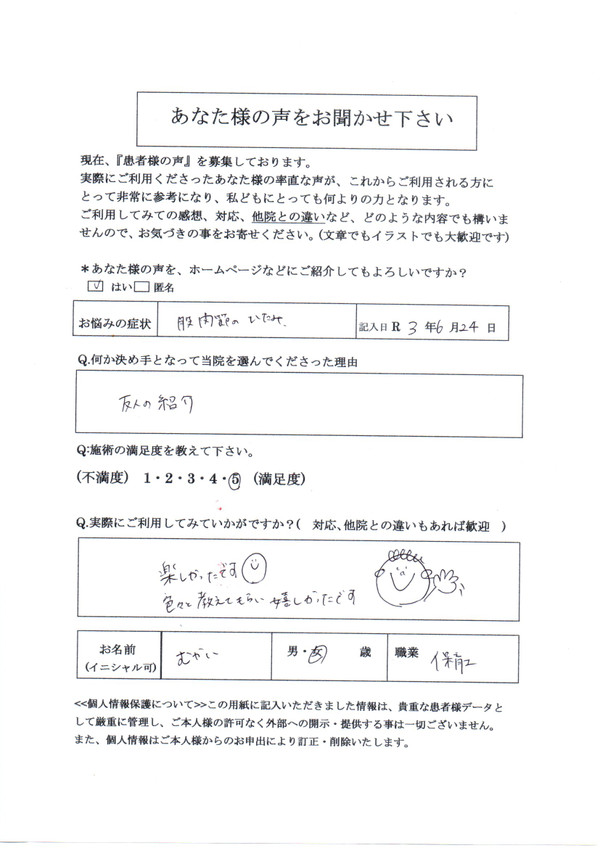 あなた様の声をお聞かせ下さい
現在、『患者様の声』を募集しております。
実際にご利用くださったあなた様の率直な声が、これからご利用される方に
とって非常に参考になり、私どもにとっても何よりの力となります。
ご利用してみての感想、対応、他院との違いなど、どのような内容でも構いま
せんので、お気づきの事をお寄せください。(文章でもイラストでも大歓迎です)
＊あなた様の声を、ホームページなどにご紹介してもよろしいですか？
はい 匿名
お悩みの症状 股関節のいたみ 記入日 R 3 年 6 月 24 日
Q.何か決め手となって当院を選んでくださった理由
友人の紹介
Q:施術の満足度を教えて下さい。
(不満度) 1・2・3・4・5 (満足度)
Q.実際にご利用してみていかがですか？( 対応、他院との違いもあれば歓迎 )
楽しかったです
色々と教えてもらい嬉しかったです
お名前 むかい 男・女 歳 職業 保育士
(イニシャル可)
<<個人情報保護について>>この用紙に記入いただきました情報は、貴重な患者様データと
して厳重に管理し、ご本人様の許可なく外部への開示・提供する事は一切ございません。
また、個人情報はご本人様からのお申出により訂正・削除いたします。